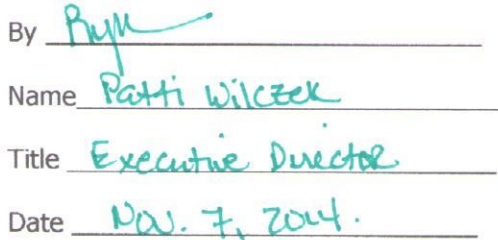 By
Name Patti Wilczek
Title Executive Director
Date Nov. 7, 2014.